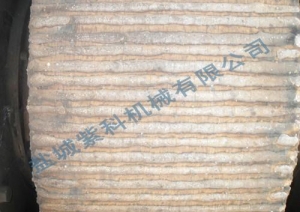 盐城紫科机械有限公司